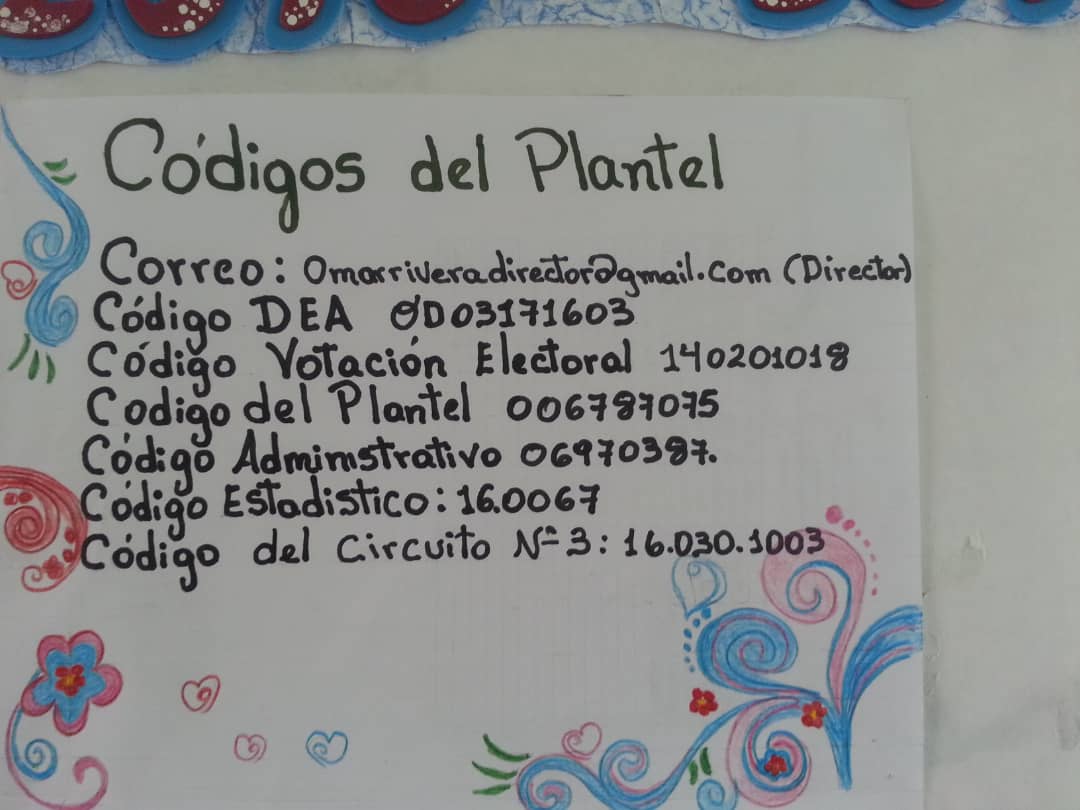 Códigos del Plantel
Correo: Omarriveradirector@gmail.com (Director)
Código DEA OD03171603
Código Votación Electoral 140201018
Codigo del Plantel 006787075
Código Administrativo 06970387.
Código Estadistico: 16.0067
Código del Circuito Nº 3: 16.030.1003